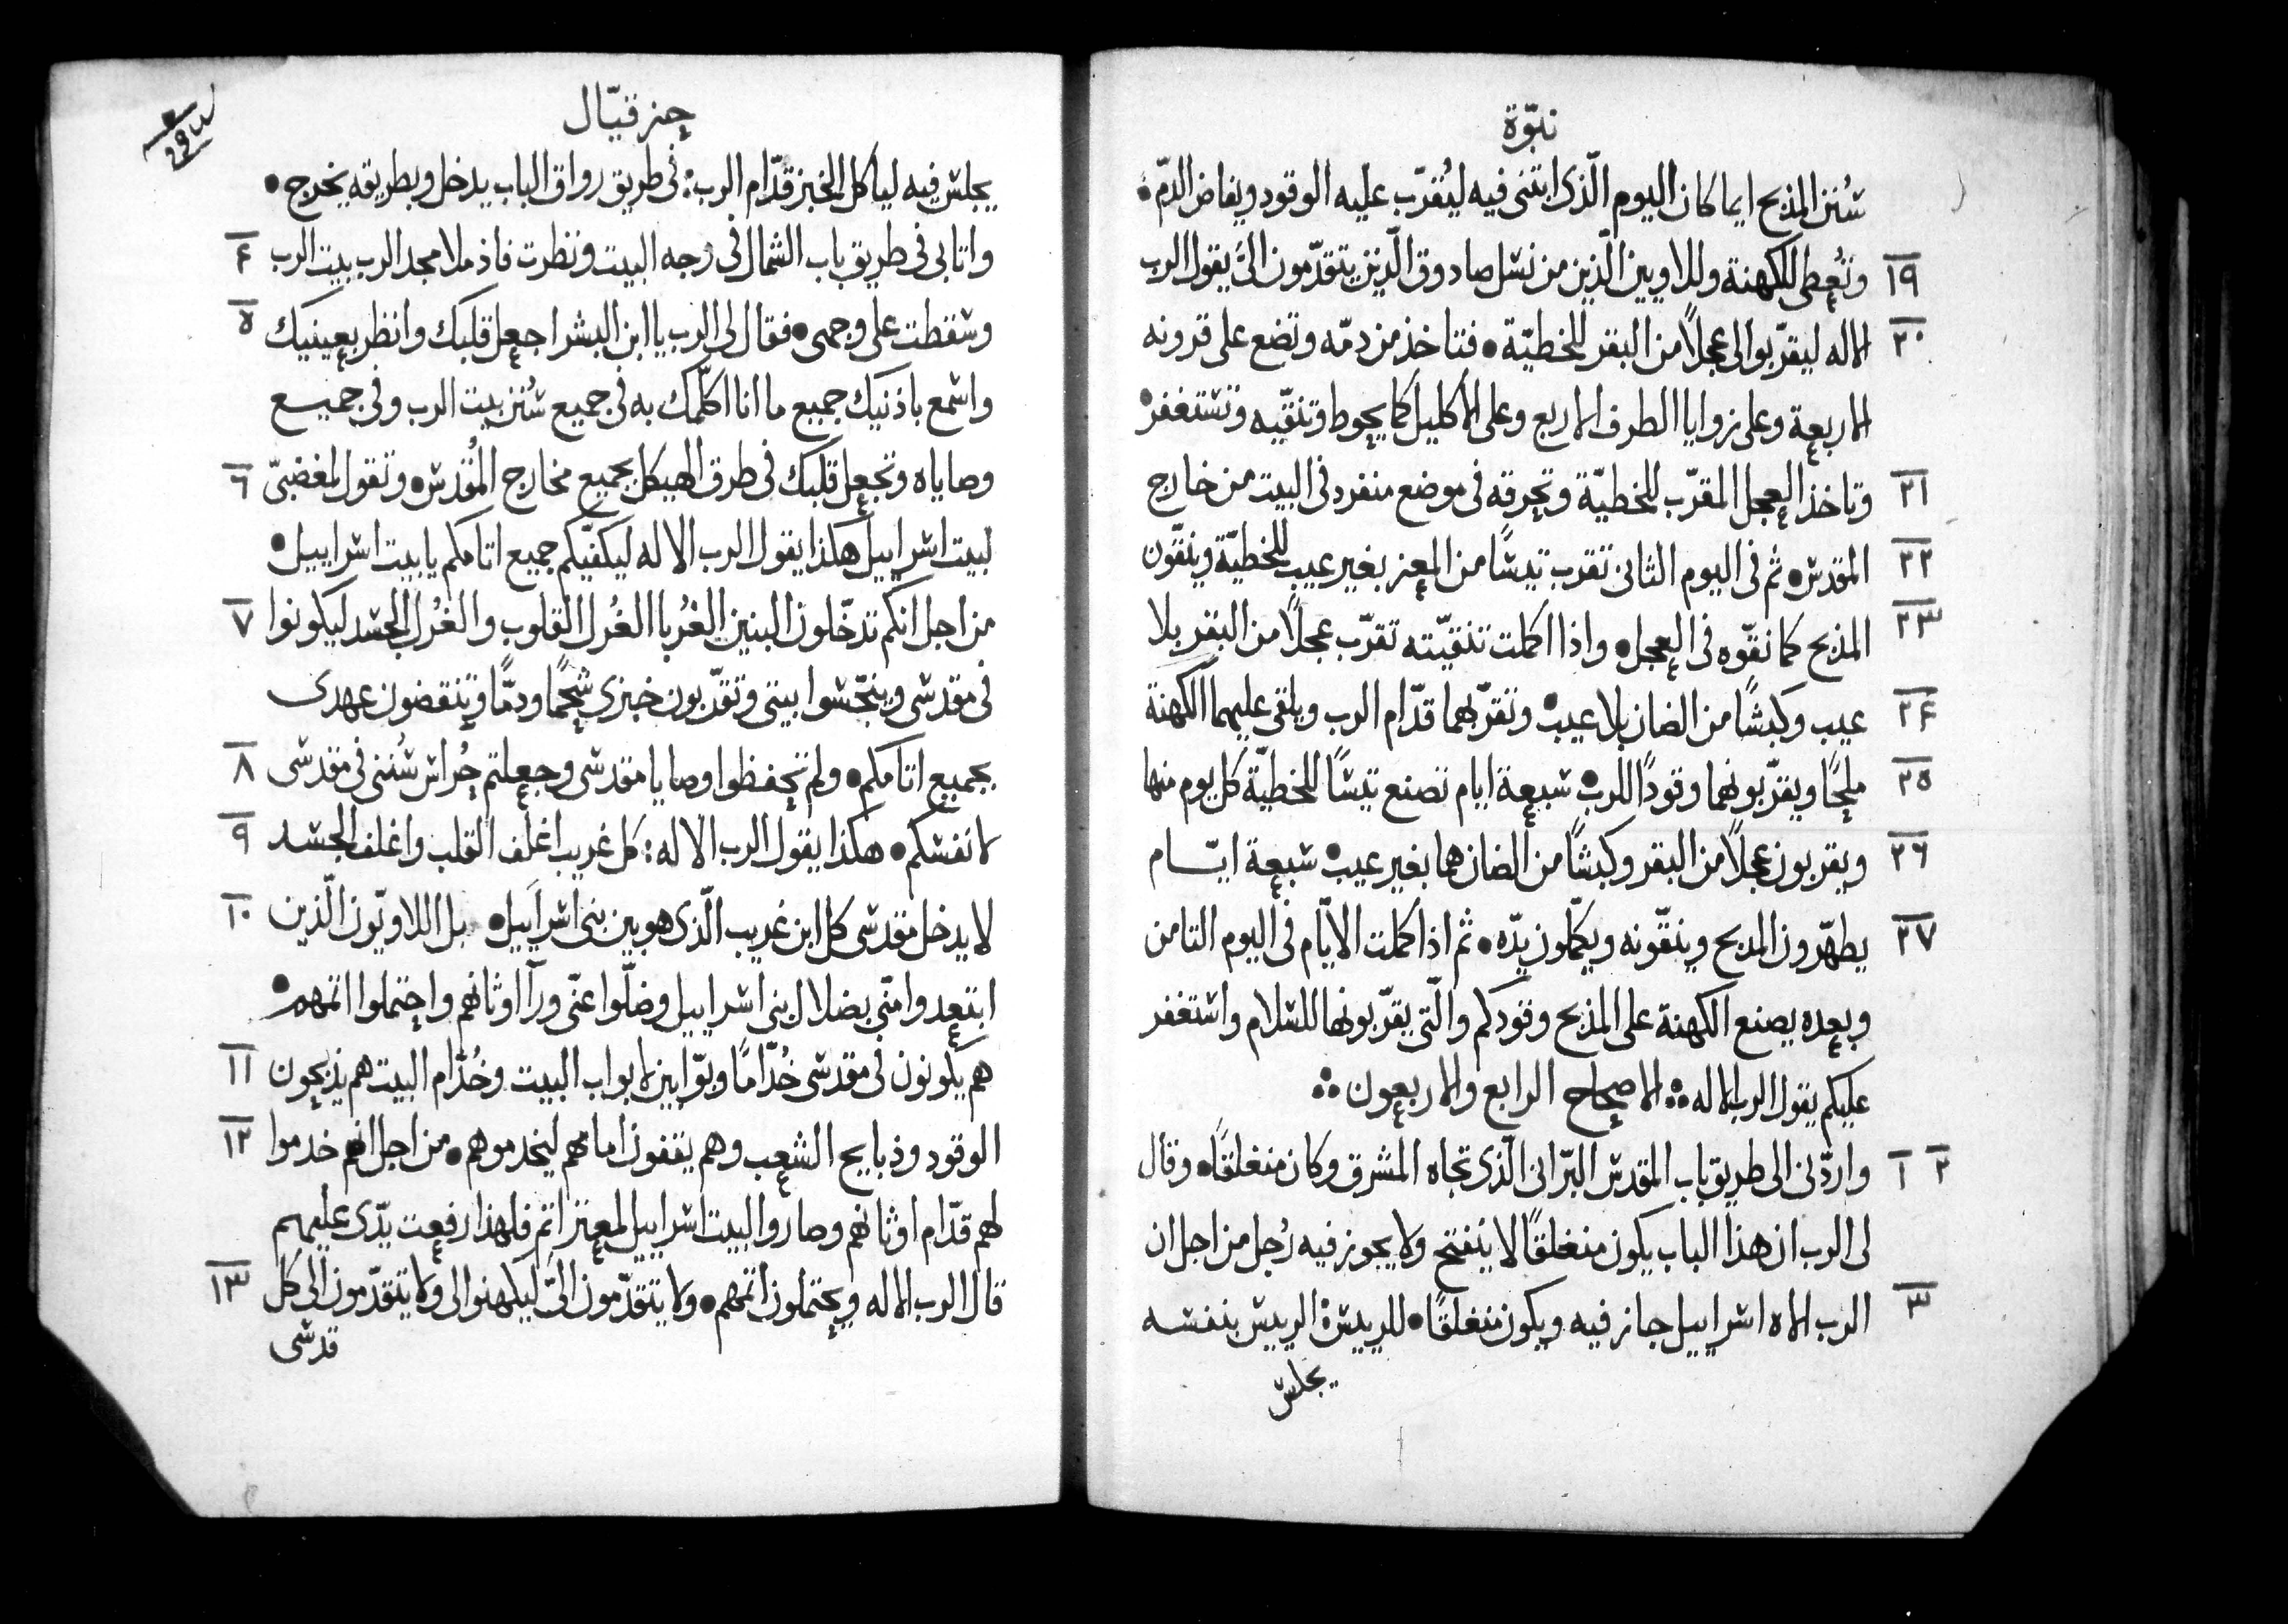 نبوّة
سُنن المذبح ايما كان اليوم الّذى ابتنى فيه ليُقرّب عليه الوقود ويفاض الدّم
١٩ وتُعطى للكهنة وللاويين الّذين من نسل صادوق الّذين يتقدّمون الىَّ يقول الرب
٢٠ الاله ليقرّبوا لى عجلاً من البقر للخطيّة • فتاخذ من دمّه وتضع على قرونه
الاربعة وعلى زوايا الطرف الاربع وعلى الاكليل كما يحوط وتنقّيه وتستغفر
٢١ وتاخذ العجل المقرّب للخطيّة وتحرقه فى موضع منفرد فى البيت من خارج
٢٢ المقدس • ثم فى اليوم الثانى تقرب تيسًا من المعز بغير عيب للخطيّة وينقّون
٢٣ المذبح كما نقّوه فى العجل • واذا اكملت تنقيّته تقرّب عجلاً من البقر بلا
٢٤ عيب وكبشًا من الضان بلا عيب • وتقرّبهما قدّام الرب ويلقى عليهما الكهنة
٢٥ ملحًا ويقرّبونهما وقودًا للرب • سبعة ايام تصنع تيسًا للخطيّة كل يوم منها
٢٦ ويقربون عجلاً من البقر وكبشًا من الضان هما بغير عيب • سبعة ايّام
٢٧ يطهّرون المدبح وينقّونه ويكمّلون يدّه • ثم اذا كملت الايّام فى اليوم الثامن
وبعده يصنع الكهنة على المذبح وقودكم والّتى يقرّبونها للسلام واستغفر
عليكم يقول الرب الاله ❖ الاصحاح الرابع والاربعون ❖
١ ٢ واردّنى الى طريق باب المقدس البرّانى الّذى تجاه المشرق وكان منغلقًا • وقال
لى الرب ان هذا الباب يكون منغلقًا لا ينفتح ولا يجوز فيه رُجل من اجل ان
٣ الرب الاه اسراييل جاز فيه ويكون منغلقًا • للرييس الرييس بنفسه
يجلس
حزقيّال
يجلس فيه لياكل الخبز قدّام الرب : فى طريق رواق الباب يدخل وبطريقه يخرج •
٤ واتا بى فى طريق باب الشمال فى وجه البيت ونظرت فاذ ملا مجد الرب بيت الرب
٥ وسقطت على وجهى • فقال لى الرب يا ابن البشر اجعل قلبك وانظر بعينيك
واسمع باذنيك جميع ما انا اكلّمك به فى جميع سُنن بيت الرب وفى جميع
٦ وصاياه وتجعل قلبك فى طرق الهيكل بجميع مخارج المُقدس • وتقول لمغضبىّ
لبيت اسراييل هكذا يقول الرب الاله ليكفّيكم جميع اثامكم يا بيت اسراييل •
٧ من اجل انكم تدخّلون البنين الغُربا الغُرل القلوب والغُرل الجسد ليكونوا
فى مقدسى وينجّسوا بيتى وتقدّبون خبزى شحمًا ودمًا وتنقضون عهدى
٨ بجميع اثامكم • ولم تحفظوا وصايا مقدسى وجعلتم حُراس سُننى فى مقدسى
٩ لانفسكم • هكذا يقول الرب الاله : كل غريب اغلف القلب واغلف الجسد
١٠ لا يدخل مقدسى كل ابن غريب الّذى هو بين بنى اسراييل • بل اللاويّون الّذين
ابتعدوا منّى بضلال بنى اسراييل وضلّوا عنّى ورآ اوثانهم واحتملوا اثمهم •
١١ هم يكونون فى مقدسى خُدّامًا وبوّابين لابواب البيت وخُدّام البيت هم يذبحون
١٢ الوقود وذبايح الشعب وهم يقفون امامهم ليخدموهم • من اجل انهم خدموا
لهم قدّام اوثانهم وصاروا لبيت اسراييل لمعثر اثم فلهذا رفعت يدّى عليهم
١٣ قال الرب الاله ويحتملون اثمهم • ولا يتقدّمون الىَّ ليكهنوا لى ولا يتقدّمون الى كل
قدسى